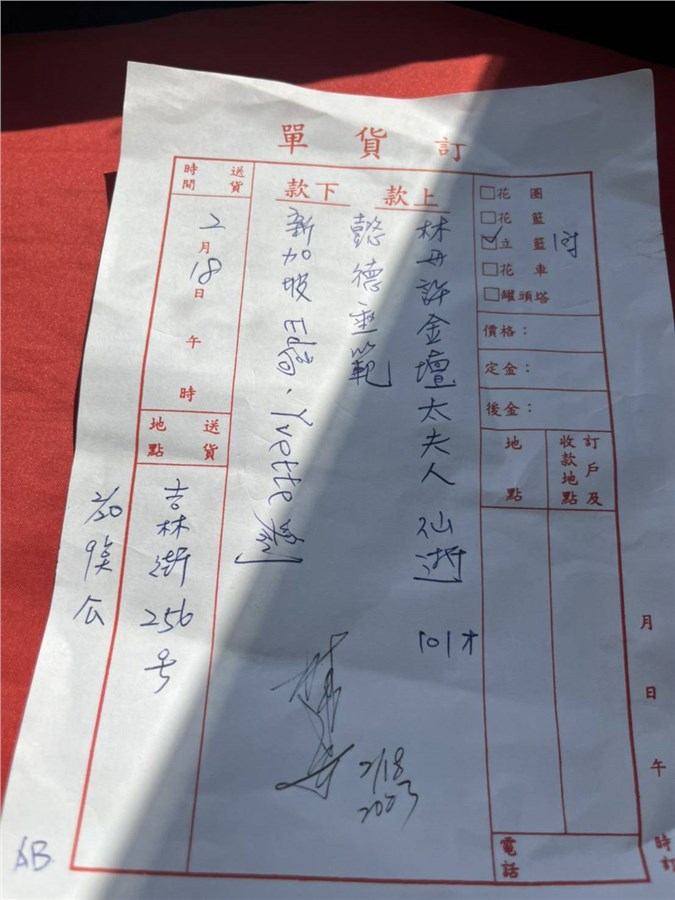 訂貨單
□花圈
□花籃
☑立籃 1対
□花車
□罐頭塔
價格：
定金：
後金：
訂戶及收款地點
地點
電話
月 日 午 時訂
上款
林母許金壇太夫人 仙逝
101才
懿德垂範
下款
新加坡Edgar、Yvette
2/18
2023
送貨時間
2月18日 午 時
送貨地點
吉林街256号
2/20
AB